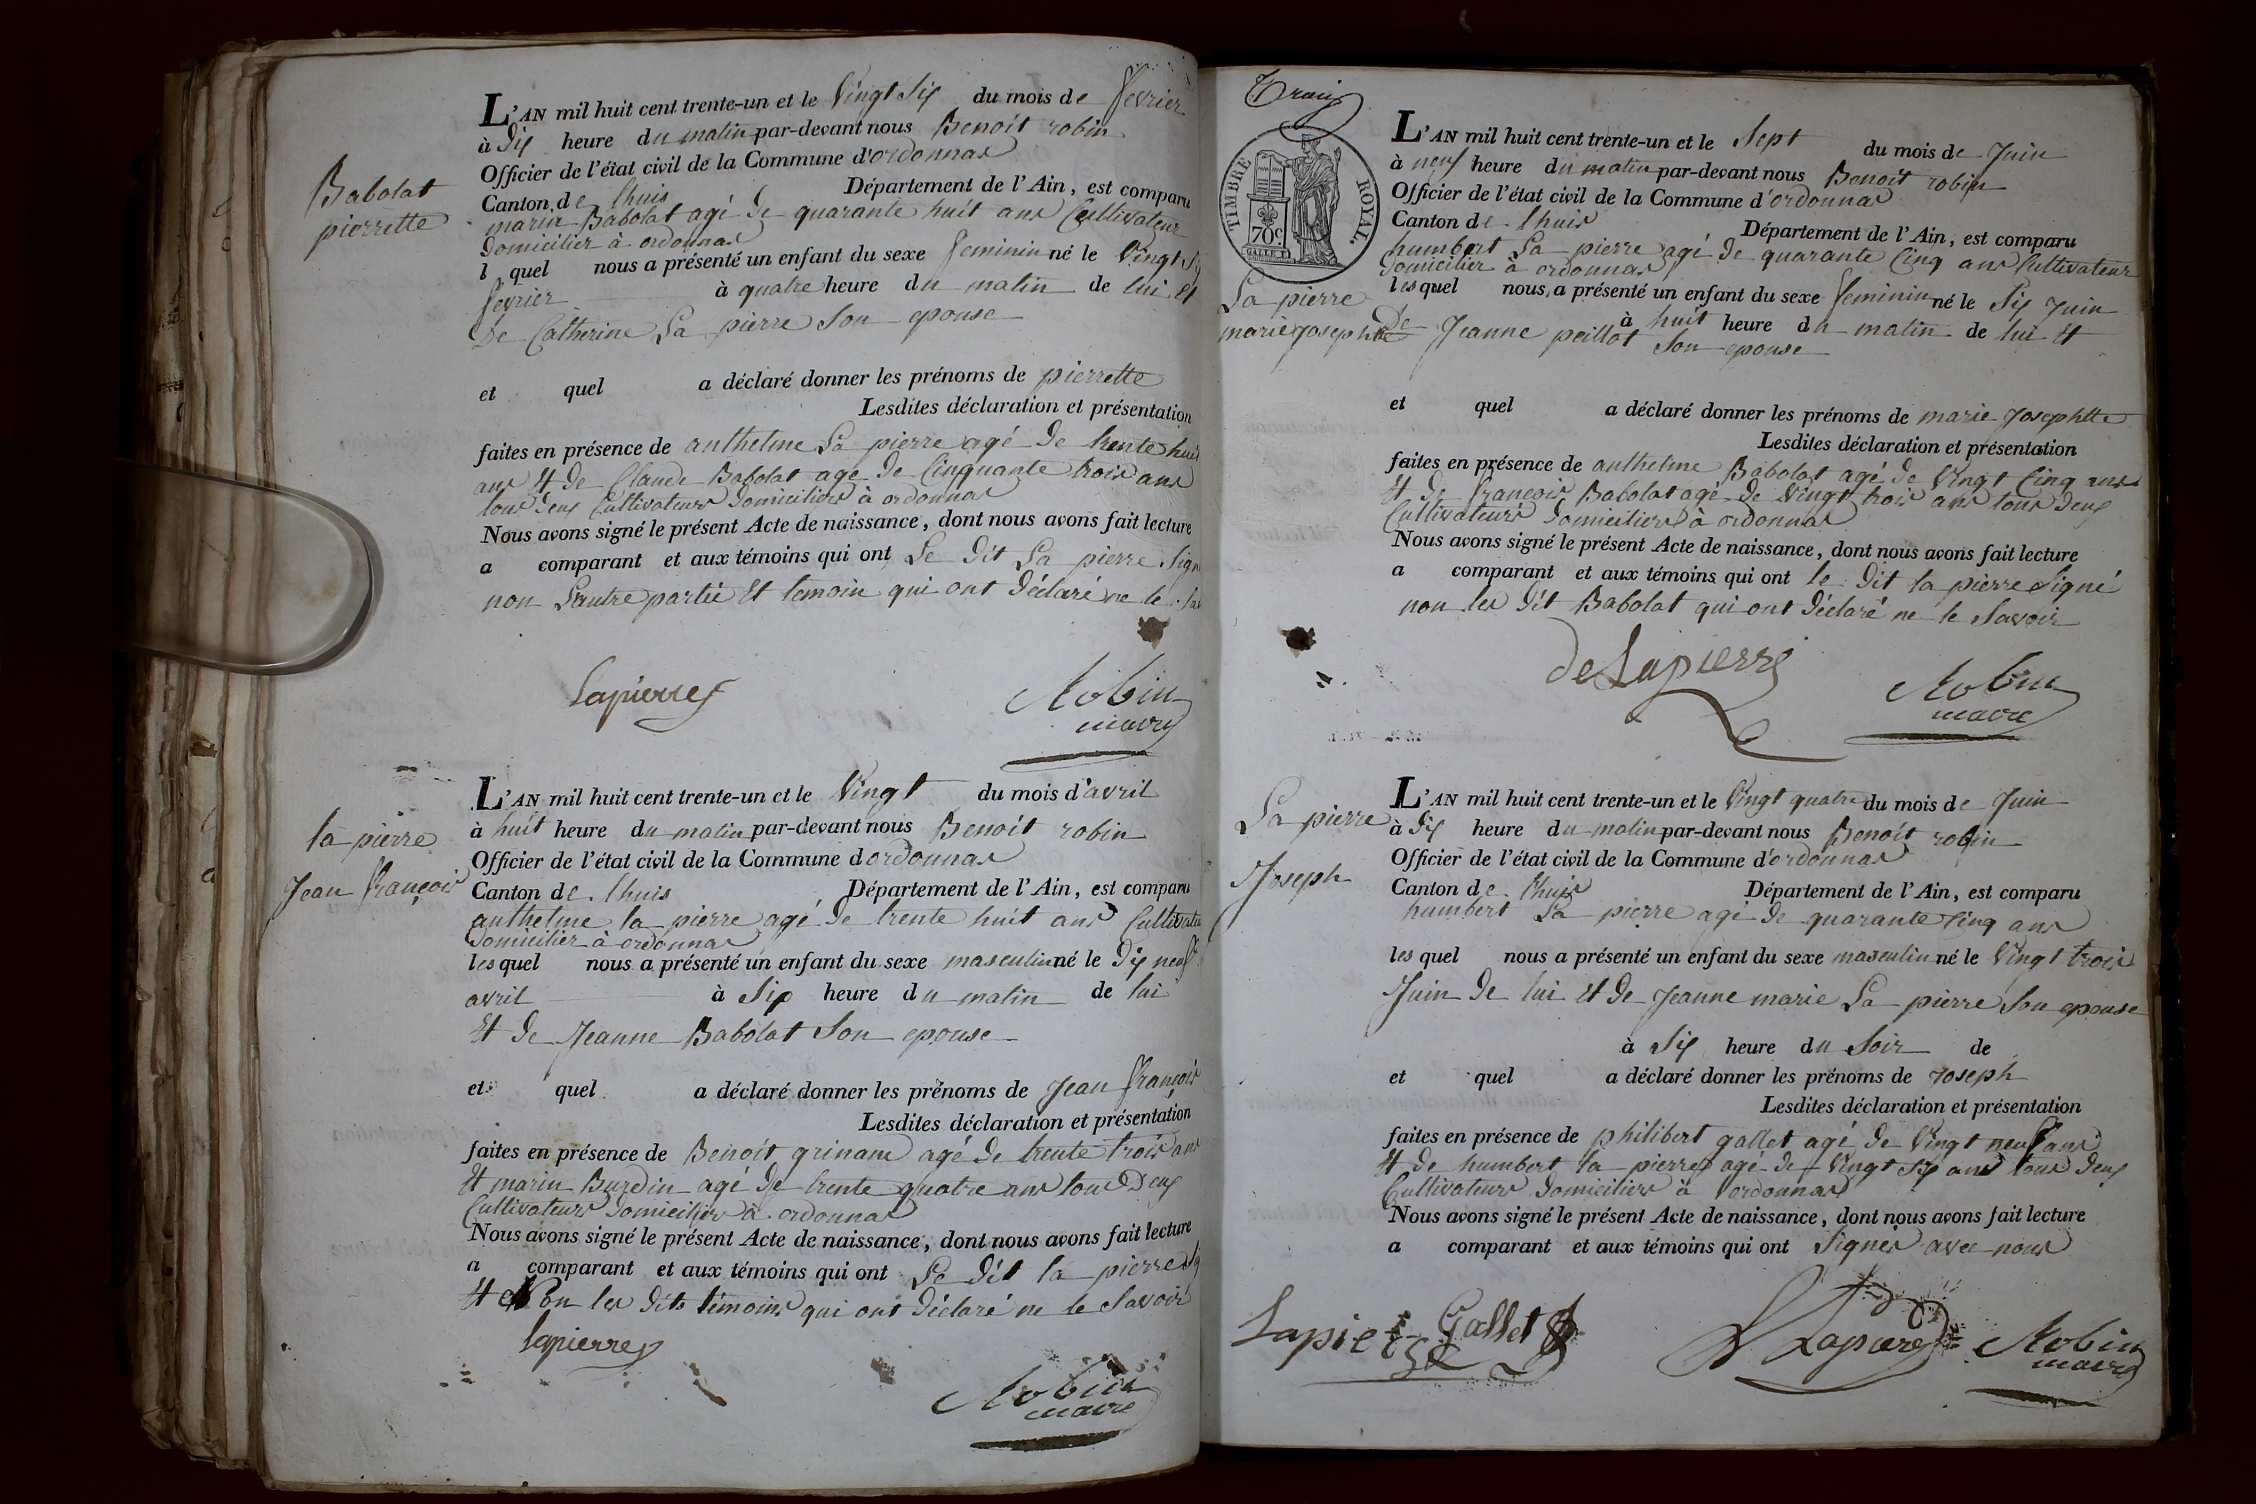 Babolat
pierrette
L'AN mil huit cent trente-un et le Vingt Six du mois de fevrier
à Dix heure du matin par-devant nous Benoit robin
Officier de l'état civil de la Commune d'ordonnas
Canton de lhuis Département de l'Ain, est comparu
marin Babolat agé de quarante huit ans Cultivateur
Domicilier à ordonnas
l quel nous a présenté un enfant du sexe feminin né le Vingt Six
fevrier à quatre heure du matin de lui et
De Catherine La pierre Son epouse
et quel a déclaré donner les prénoms de pierrette
Lesdites déclaration et présentation
faites en présence de anthelme La pierre agé de trente huit
ans et de Claude Babolat age De Cinquante trois ans
tous deux Cultivateurs Domiciliers à ordonnas
Nous avons signé le présent Acte de naissance, dont nous avons fait lecture
a comparant et aux témoins qui ont Le Dit La pierre Signé
non L'autre partie et temoin qui ont Déclaré ne le
Lapierre
Robin
maire
la pierre
Jean françois
L'AN mil huit cent trente-un et le Vingt du mois d'avril
à huit heure du matin par-devant nous Benoit robin
Officier de l'état civil de la Commune dordonnas
Canton de lhuis Département de l'Ain, est comparu
anthelme la pierre agé De trente huit ans Cultivateur
Domicilier à ordonnas
les quel nous a présenté un enfant du sexe masculin né le Dix neuf
avril à Six heure du matin de lui
et De Jeanne Babolat Son epouse
et quel a déclaré donner les prénoms de Jean françois
Lesdites déclaration et présentation
faites en présence de Benoit grinand agé De trente trois ans
et marin Burdin agé De trente quatre ans tous Deux
Cultivateurs Domiciliers à ordonnas
Nous avons signé le présent Acte de naissance, dont nous avons fait lecture
a comparant et aux témoins qui ont Le Dit la pierre
et Non les Dits témoins qui ont Déclaré ne le Savoir
lapierre
Robin
maire
TIMBRE ROYAL.
70c
La pierre
marie Josephtte
L'AN mil huit cent trente-un et le Sept du mois de Juin
à neuf heure du matin par-devant nous Benoit robin
Officier de l'état civil de la Commune d'ordonnas
Canton de lhuis Département de l'Ain, est comparu
humbert La pierre agé De quarante Cinq ans Cultivateur
Domicilier à ordonnas
les quel nous a présenté un enfant du sexe feminin né le Six Juin
à huit heure du matin de lui et
De Jeanne peillot Son epouse
et quel a déclaré donner les prénoms de marie Josephtte
Lesdites déclaration et présentation
faites en présence de anthelme Babolat agé De Vingt Cinq ans
et De françois Babolat agé De Vingt trois ans tous Deux
Cultivateurs Domiciliers à ordonnas
Nous avons signé le présent Acte de naissance, dont nous avons fait lecture
a comparant et aux témoins qui ont le Dit la pierre Signé
non les Dit Babolat qui ont Déclaré ne le Savoir
deLapierre
Robin
maire
La pierre
Joseph
L'AN mil huit cent trente-un et le Vingt quatre du mois de Juin
à Dix heure du matin par-devant nous Benoit robin
Officier de l'état civil de la Commune d'ordonnas
Canton de lhuis Département de l'Ain, est comparu
humbert La pierre agé De quarante Cinq ans
les quel nous a présenté un enfant du sexe masculin né le Vingt trois
Juin De lui et De Jeanne marie La pierre Son epouse
à Six heure du Soir de
et quel a déclaré donner les prénoms de Joseph
Lesdites déclaration et présentation
faites en présence de philibert gallet agé De Vingt neuf ans
et De humbert la pierre agé De Vingt Six ans tous Deux
Cultivateurs Domiciliers à ordonnas
Nous avons signé le présent Acte de naissance, dont nous avons fait lecture
a comparant et aux témoins qui ont Signer avec nous
Lapierre Gallet
Lapierre
Robin
maire